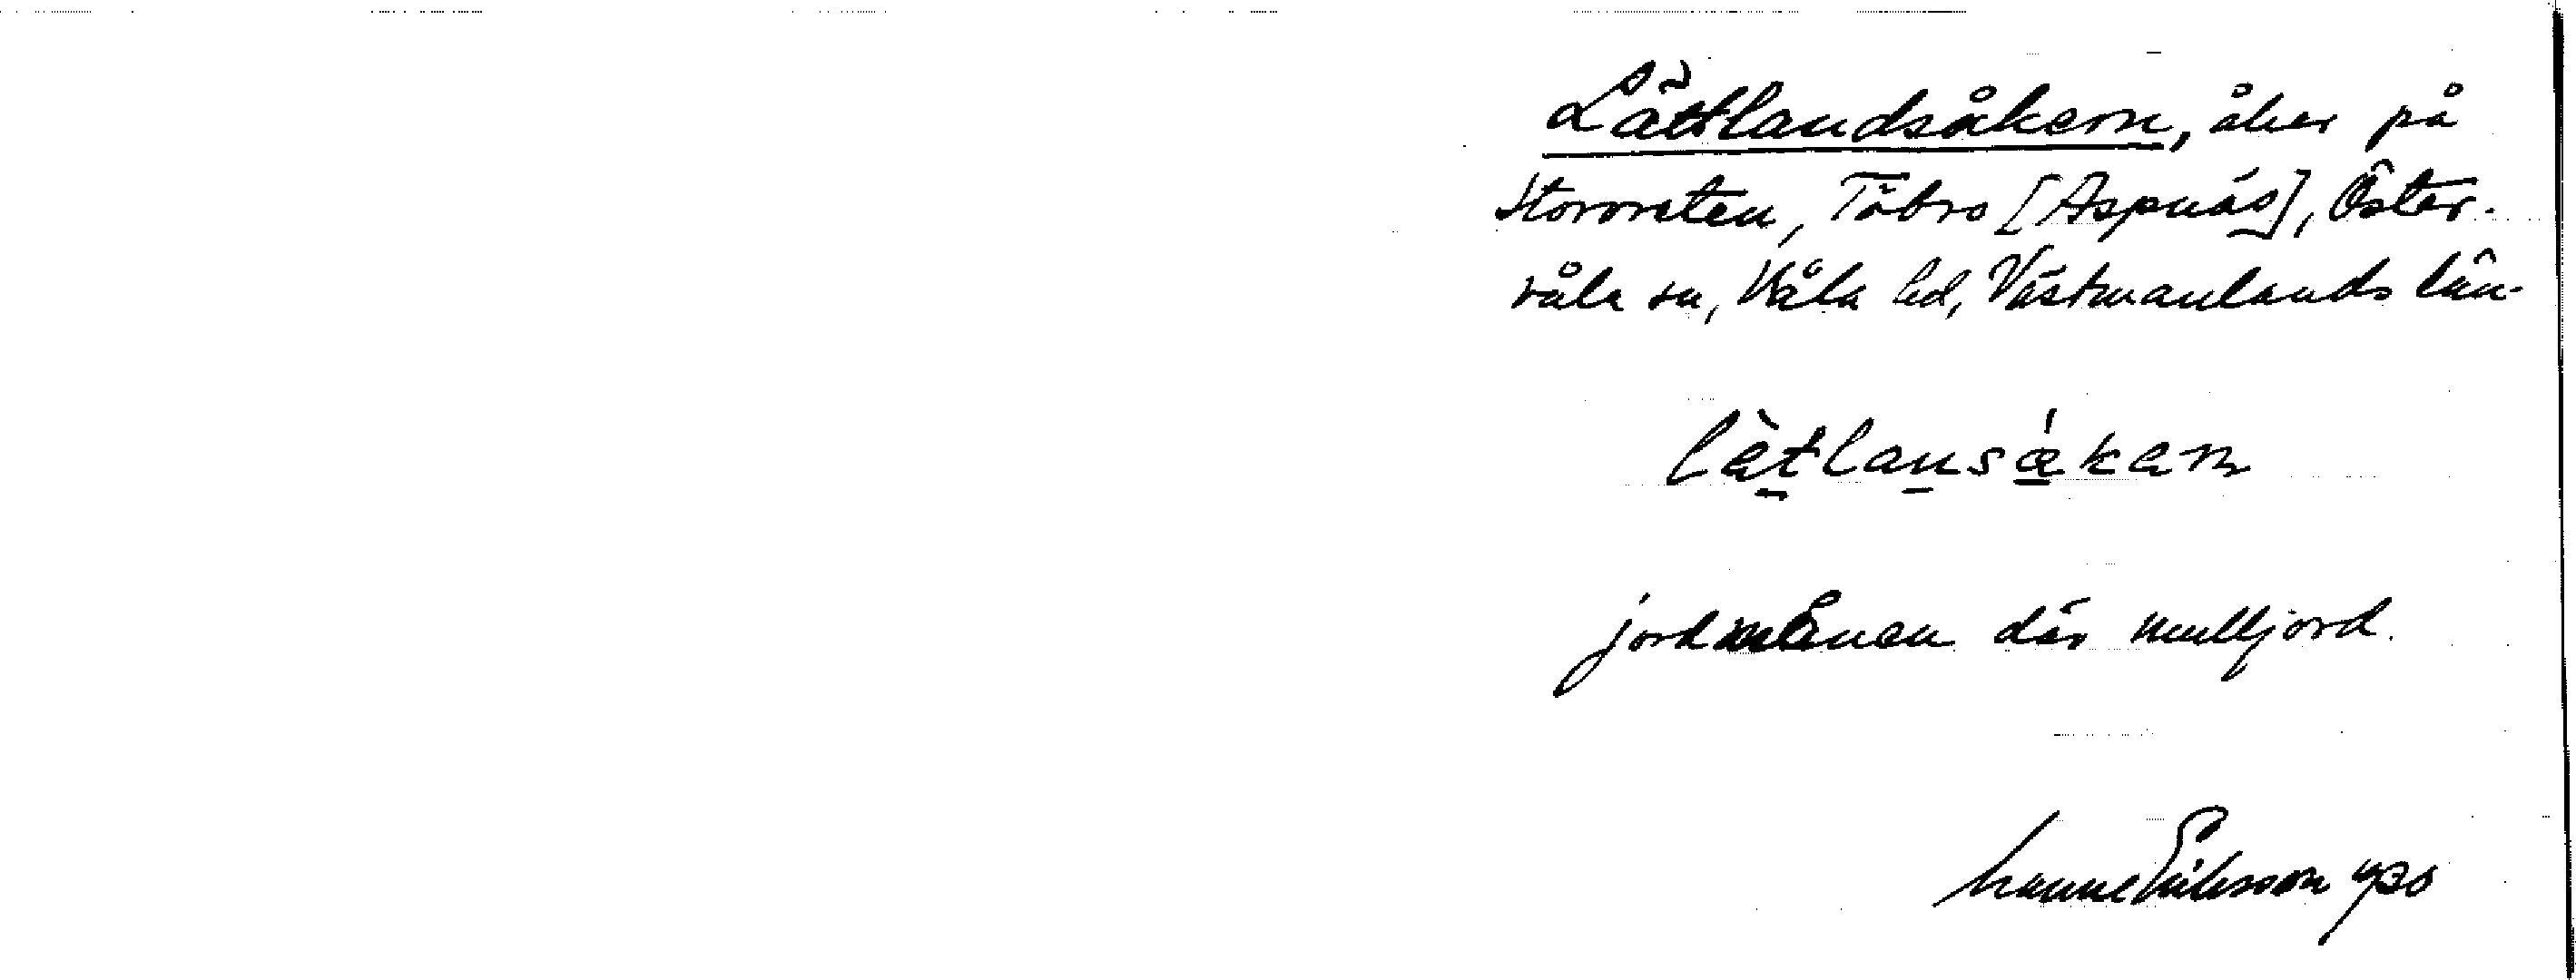 Lättlandsåkern, åker på
Storrreten, Tåbro [Aspnäs], Öster-
våla sn, Våla hd, Västmanlands län.
lätlansåkan
jordmånen där mulljord.
Eriksson 1930